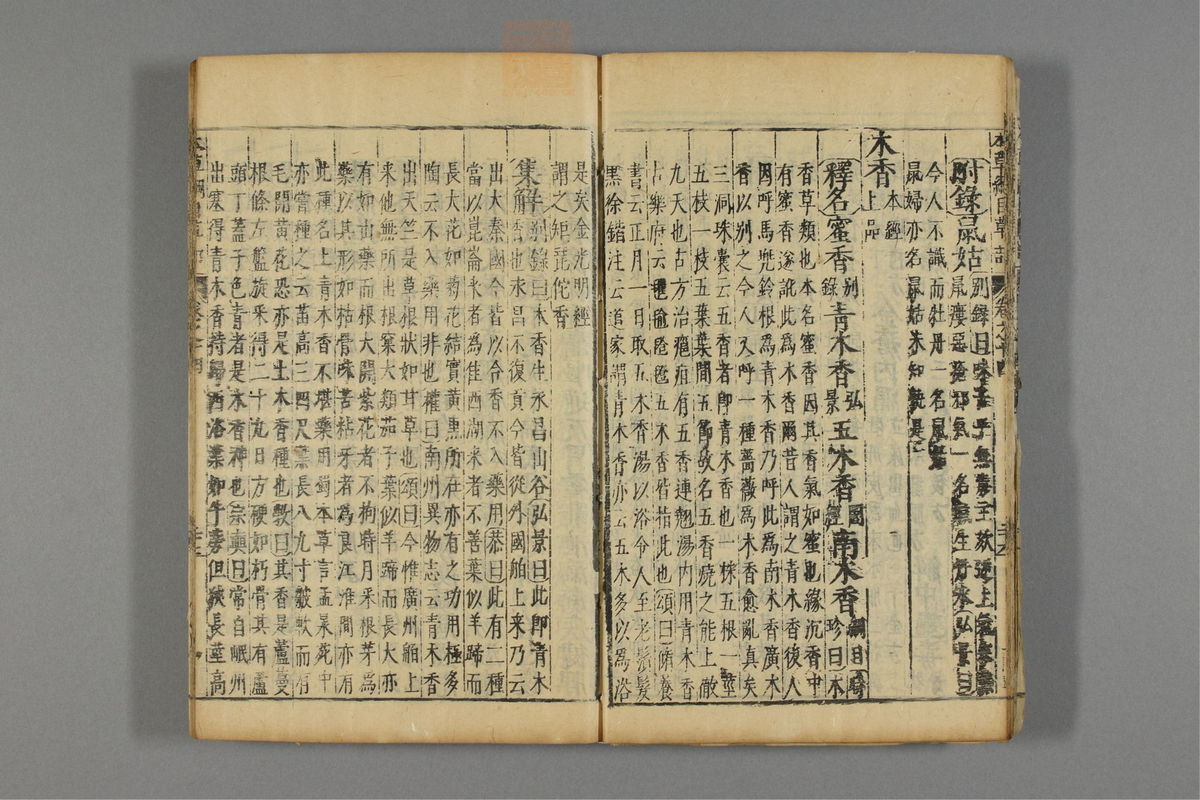 附錄鼠姑別錄曰味苦平無毒主欬逆上氣寒熱
鼠瘻惡瘡邪氣一名生水弘景曰
今人不識而牡丹一名鼠
鼠婦亦名鼠姑未知孰是
木香本經上品
釋名蜜香別錄青木香弘景五木香圖經南木香綱目時珍曰木
香草類也本名蜜香因其香氣如蜜也緣沉香中
有蜜香遂訛此為木香爾昔人謂之青木香後人
因呼馬兜鈴根為青木香乃呼此為南木香廣木
香以別之今人又呼一種薔薇為木香愈亂真矣
三洞珠囊云五香者即青木香也一株五根一莖
五枝一枝五葉葉間五節故名五香燒之能上徹
九天也古方治癰疽有五香連翹湯內用青木香
古樂府云氍毹㲪㲣五木香皆指此也頌曰脩養
書云正月一日取五木香湯以浴令人至老鬚髮
黑徐鍇注云道家謂青木香亦云五木多以為浴
是矣金光明經
謂之矩琵佗香
集解別錄曰木香生永昌山谷弘景曰此即青木
香也永昌不復貢今皆從外國舶上来乃云
出大秦國今皆以合香不入藥用恭曰此有二種
當以崑崙来者為佳西湖来者不善葉似羊蹄而
長大花如菊花結實黃黑所在亦有之功用極多
陶云不入藥用非也權曰南州異物志云青木香
出天竺是草根狀如甘草也頌曰今惟廣州舶上
来他無所出根窠大類茄子葉似羊蹄而長大亦
有如山藥而根大開紫花者不拘時月采根芽為
藥以其形如枯骨味苦粘牙者為良江淮間亦有
此種名土青木香不堪藥用蜀本草言孟昶苑中
亦嘗種之云苗高三四尺葉長八九寸皺軟而有
毛開黃花恐亦是土木香種也斆曰其香是蘆蔓
根條左盤旋采得二十九日方硬如朽骨其有蘆
頭丁蓋子色青者是木香神也宗奭曰常自岷州
出塞得青木香持歸西洛葉如牛蒡但狹長莖高